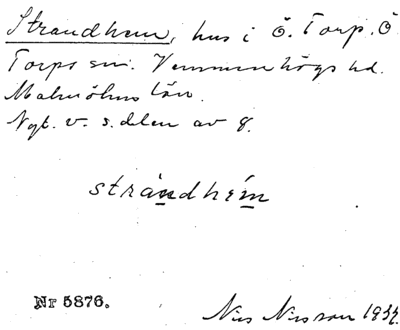 Strandhem, hus i Ö. Torp. Ö
Torps sn. Vemmenhögs hd.
Malmöhus län.
Nyt. v. s. delen av g.
strándhém
Nr 5876.
Nils Nilsson 1934.